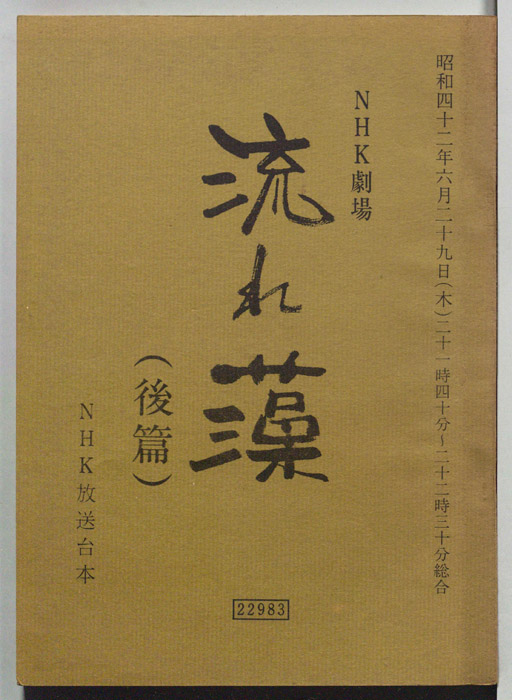 昭和四十二年六月二十九日(木)二十一時四十分~二十二時三十分総合
NHK劇場
流れ藻
(後篇)
NHK放送台本
22983